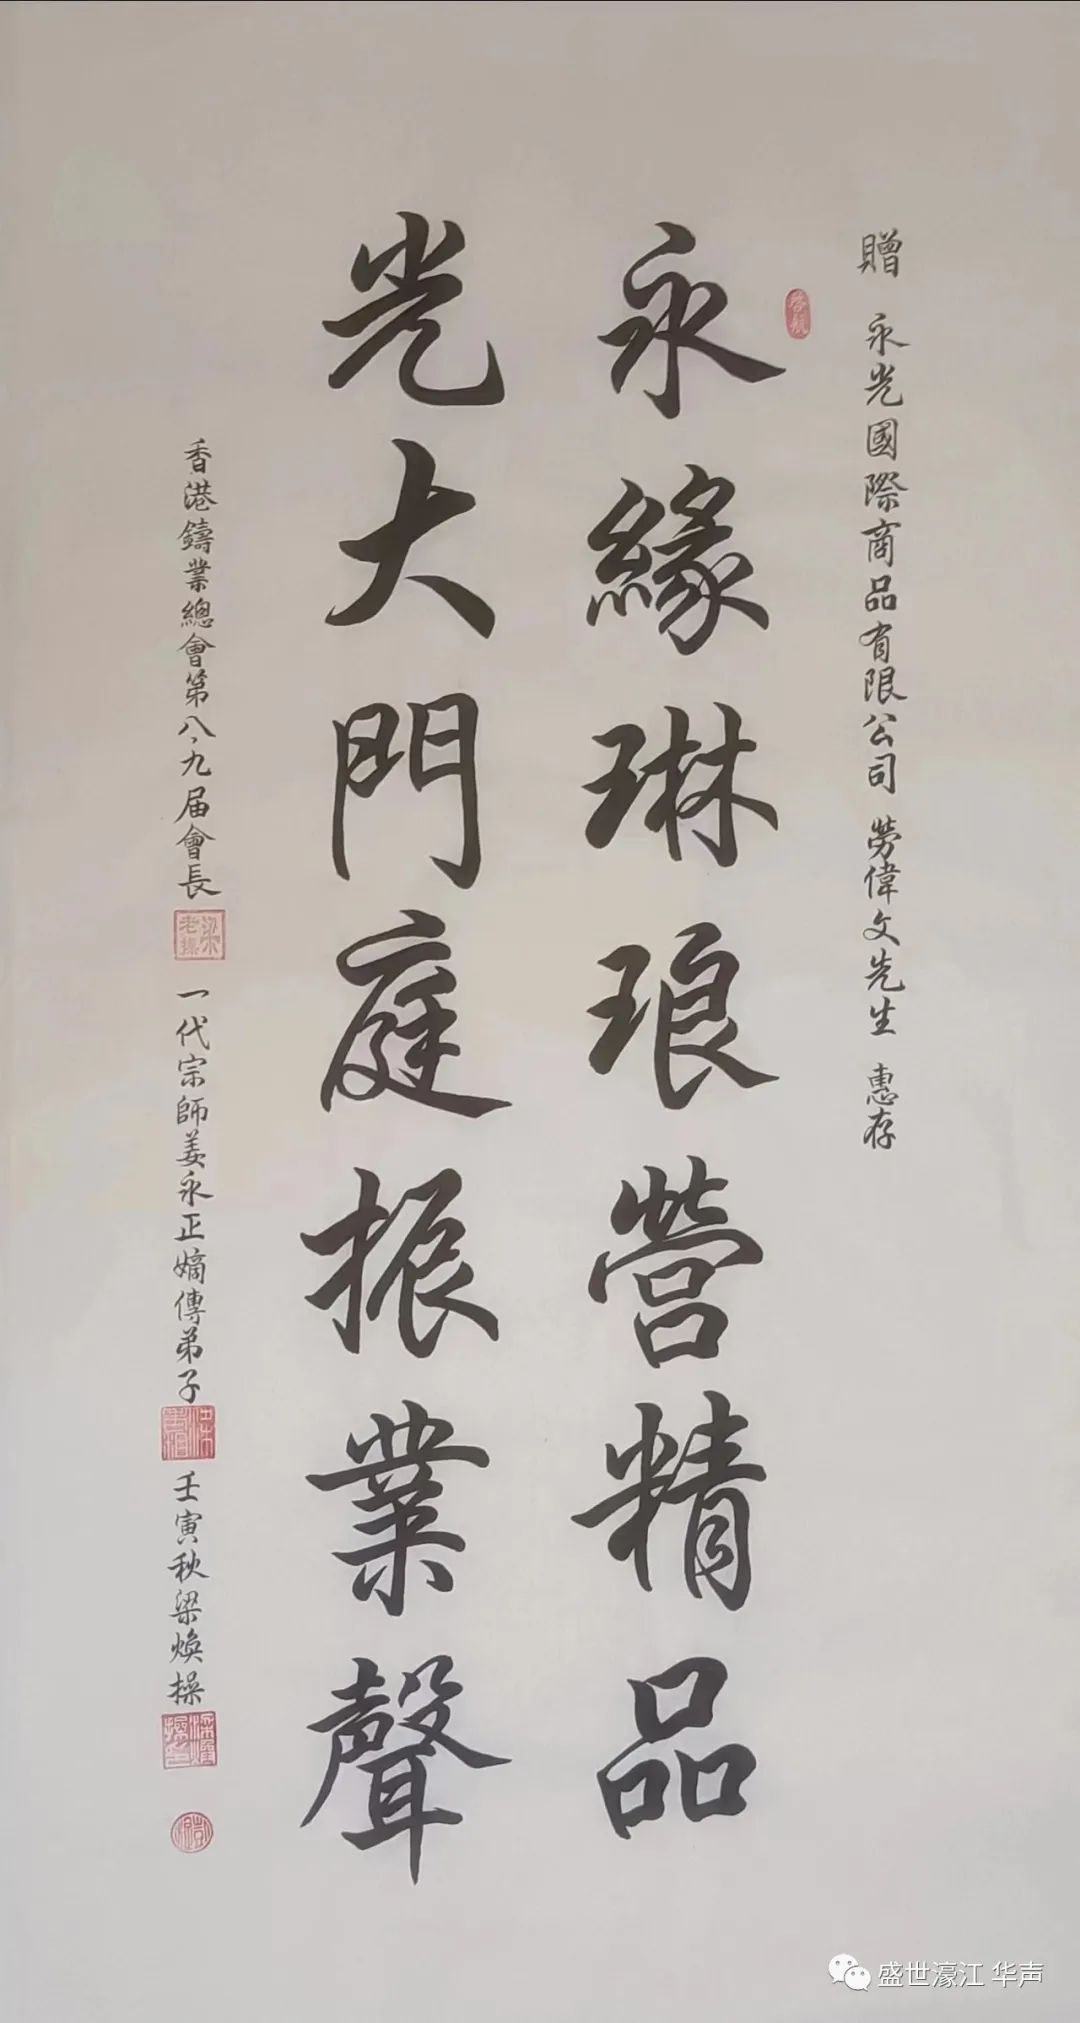 贈 永光國際商品有限公司 勞偉文先生 惠存
啓航
永緣琳琅營精品
光大門庭振業聲
香港鑄業總會第八、九届會長
梁老操
一代宗師姜永正嫡傳弟子
壬寅秋梁煥操
盛世濠江 华声